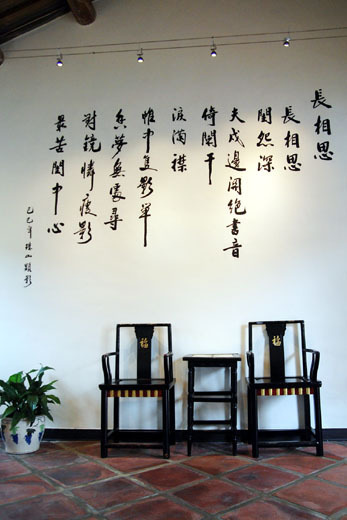 長相思
長相思
閨怨深
夫戍邊關絕書音
倚闌干
淚滿襟
帷中隻影單
夢無處尋
對鏡憐瘦影
最苦閨中心
福
福